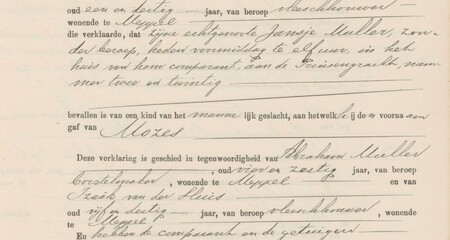 oud een en dertig — jaar, van beroep vleeschhouwer
wonende te Meppel
die verklaarde, dat zijne echtgenote Jansje Muller, zon-
der beroep, heden voormiddag te elf uur, in het
huis van hem comparant, aan de Prinsengracht, num-
mer twee en twintig
bevallen is van een kind van het manne lijk geslacht, aan hetwelk hij de voorna am
gaf van Mozes
Deze verklaring is geschied in tegenwoordigheid van Abraham Muller
borstelmaker, oud vier en zestig jaar, van beroep
, wonende te Meppel — en van
Izaak van der Sluis
oud vijf en dertig — jaar, van beroep vleeschhouwer,
wonende te Meppel
En hebben de comparant en de getuigen